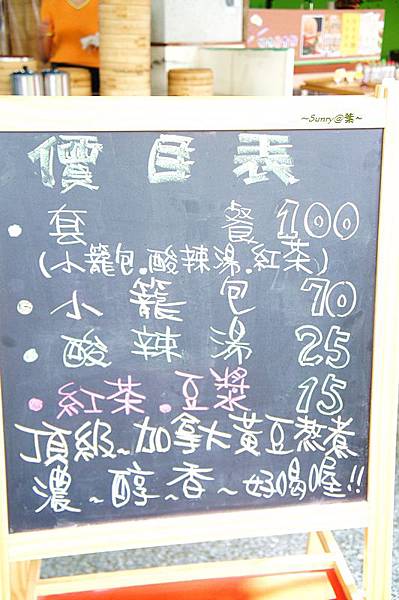 ~Sunry@葉~
價目表
·套餐 100
(小籠包.酸辣湯.紅茶)
·小籠包 70
·酸辣湯 25
·紅茶.豆漿 15
頂級~加拿大黃豆熬煮
濃~醇~香~好喝喔!!